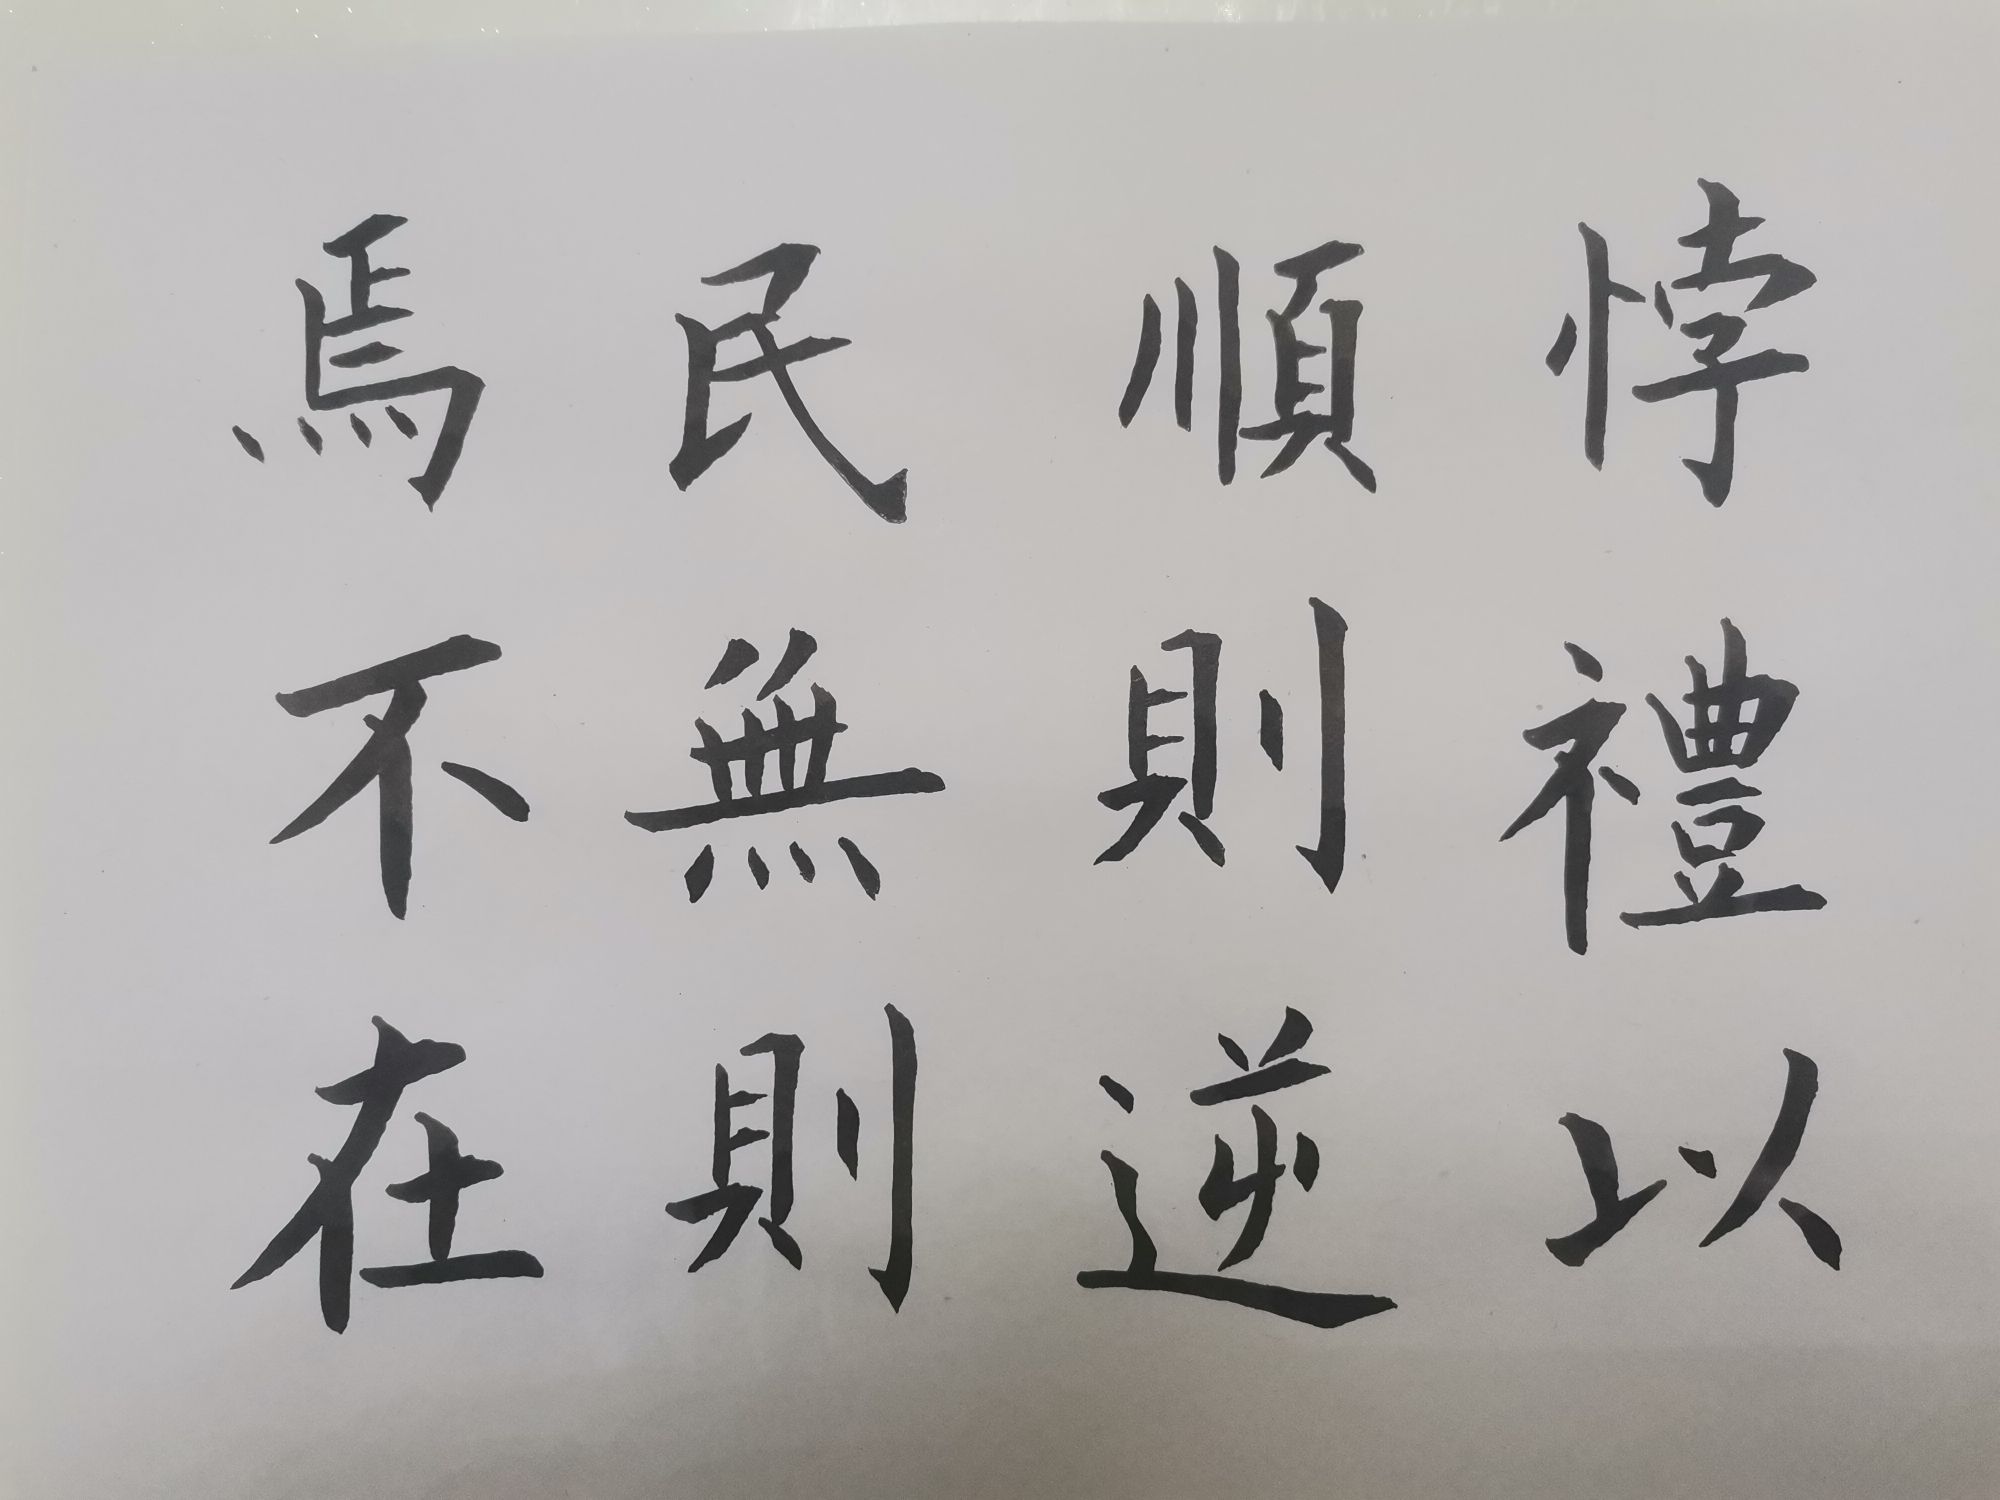 悖禮以
順則逆
民無則
焉不在